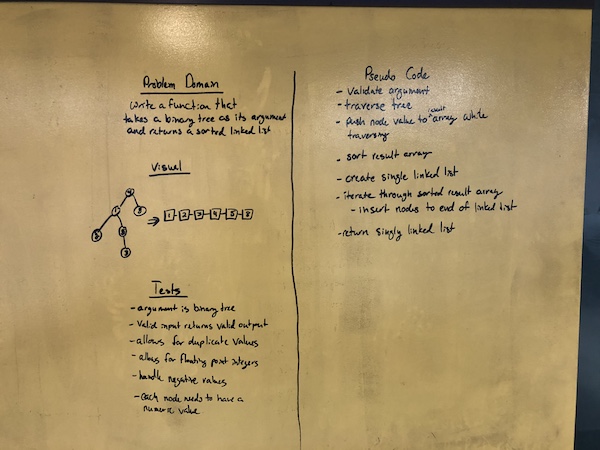 Problem Domain
write a function that
takes a binary tree as its argument
and returns a sorted linked list
Visual
1 2 3 4 5 8
Tests
- argument is binary tree
- Valid input returns valid output
- allows for duplicate values
- allows for floating point integers
- handle negative values
- each node needs to have a
numeric value
Pseudo Code
- validate argument
- traverse tree
- push node value to result array while
traversing
- sort result array
- create single linked list
- iterate through sorted result array
- insert nodes to end of linked list
- return singly linked list